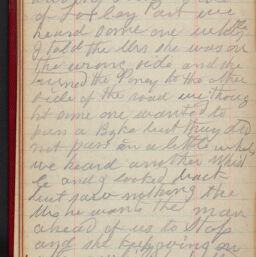 of Loxley Park we
heard some one whistle
I told the Mrs she was on
the wrong side and she
turned the Poney to the other
side of the road we though
ht some one wanted to
pass a Bike but they did
not pass in a little while
we heard another whist
le and I looked back
but saw nothing the
Mrs he wants the man
ahead of us to stop
and she kept going on